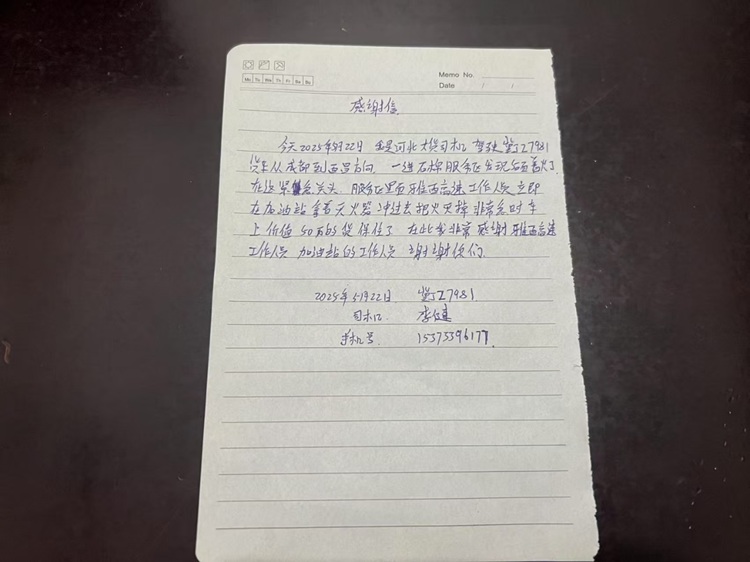 Memo No.
Date / /
Mo Tu We Th Fr Sa Su
感谢信
今天2025年5月22日 我是河北大货司机 驾驶冀J Z7981
货车从成都到西昌方向 一进石棉服务区发现后面着火了
在这紧急关头 服务区里面雅西高速工作人员立即
在加油站拿着灭火器冲过去把火灭掉 非常及时 车
上价值50万的货保住了 在此我非常感谢雅西高速
工作人员 加油站的工作人员 谢谢你们
2025年5月22日 冀J Z7981
司机 李健
手机号 15375396177